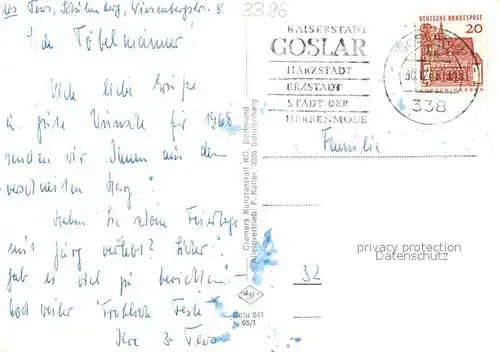 3396
Schulenberg, Wiesenbergstr. 8
Viele liebe Grüße
u. gute Wünsche für 1968
senden wir Ihnen aus dem
verschneiten Harz.
Haben Sie schöne Feiertage
mit Jürg verlebt? Sicher
gab es viel zu berichten.
Noch weiter "Fröhliche Feste"
Ihre
KAISERSTADT
GOSLAR
HARZSTADT
ERZSTADT
STADT DER
HERRENMODE
338
DEUTSCHE BUNDESPOST
20
Familie
Cramers Kunstanstalt KG, Dortmund
Alleinvertrieb: F. Keller, 3396 Schulenberg
privacy protection
Datenschutz
32
Solu 041
65/1